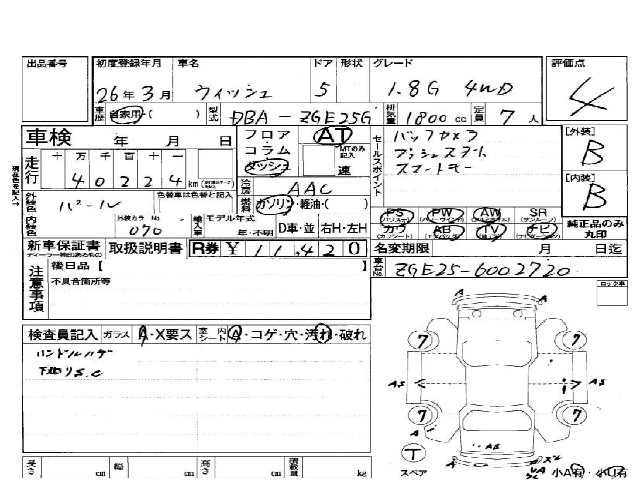 出品番号
初度登録年月 車名 ドア 形状 グレード 評価点
26年3月 ウィッシュ 5 1.8G 4WD 4
車歴 自家用・( ) 型式 DBA-ZGE25G 排気量 1800cc 定員 7人
車検 年 月 日
フロア・コラム・ダッシュ AT
MTのみ記入 速
セールスポイント
バックカメラ
プッシュスタート
スマートキー
[外装] B
[内装] B
走行 十万千百十一
40224 km
冷房 AAC
外装色 パール
色替車は色替と記入
燃料 ガソリン・軽油・( )
内装色
外装カラーNo 070
輸入車 モデル年式 年・不明 D車・並 右H・左H
PS PW AW SR
カワ AB TV ナビ
純正品のみ丸印
新車保証書 取扱説明書 R券 ¥11,420
名変期限 月 日迄
注意事項
後日品【 】
不具合箇所等
車台No ZGE25-6002720
ロック車
検査員記入 ガラス A・X要ス 室内シート A・コゲ・穴・汚れ・破れ
ハンドルハゲ
下廻りS.C
A A
7 7
AS AS
7 7
A
AS
T
スペア
小A有・小U有
長さ cm 幅 cm 高さ cm 積載量 kg